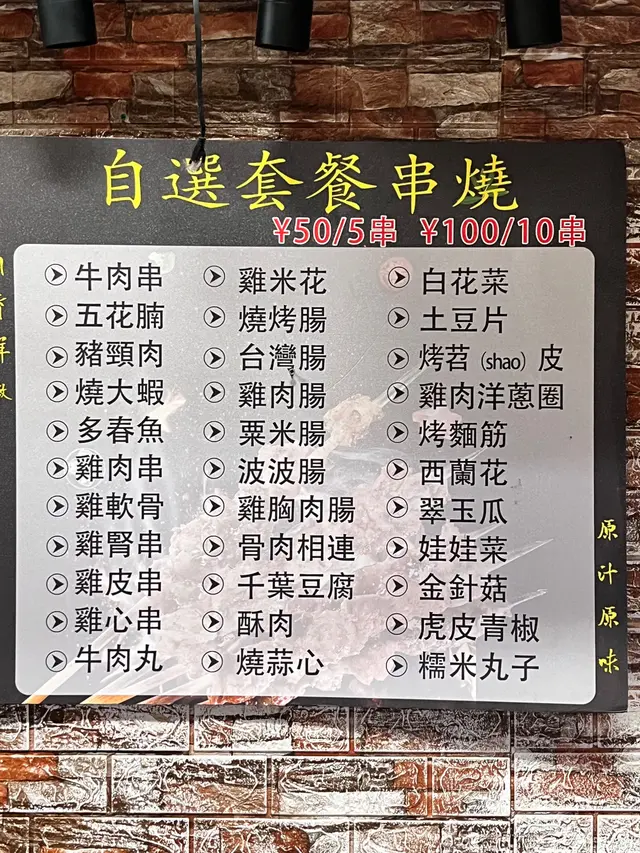 自選套餐串燒
¥50/5串 ¥100/10串
牛肉串
五花腩
豬頸肉
燒大蝦
多春魚
雞肉串
雞軟骨
雞腎串
雞皮串
雞心串
牛肉丸
雞米花
燒烤腸
台灣腸
雞肉腸
粟米腸
波波腸
雞胸肉腸
骨肉相連
千葉豆腐
酥肉
燒蒜心
白花菜
土豆片
烤苕(shao)皮
雞肉洋蔥圈
烤麵筋
西蘭花
翠玉瓜
娃娃菜
金針菇
虎皮青椒
糯米丸子
原汁原味